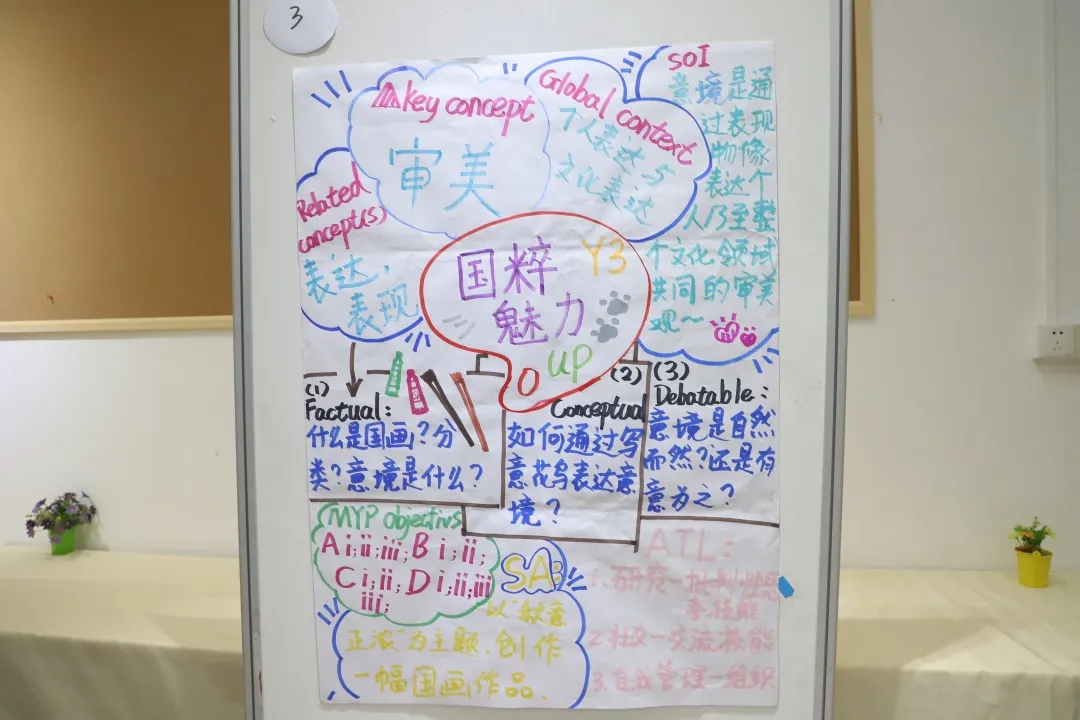 3
key concept
审美
Global context
个人表达与
文化表达
SOI
意境是通
过表现
物像
表达个
人乃至整
个文化领域
共同的审美
观~
Related
concept(s)
表达,
表现
国粹
魅力
Y3
UP
(1)
Factual:
什么是国画?分
类?意境是什么?
(2)
Conceptual
如何通过写
意花鸟表达意
境?
(3)
Debatable:
意境是自然
而然?还是有
意为之?
MYP objectivs
A i;ii;iii; B i;ii;
C i;ii; D i;ii;iii
iii;
SA:
以"秋意
正浓"为主题,创作
一幅国画作品.
ATL:
1.研究-批判性思
考技能
2.社交-交流技能
3.自我管理-组织